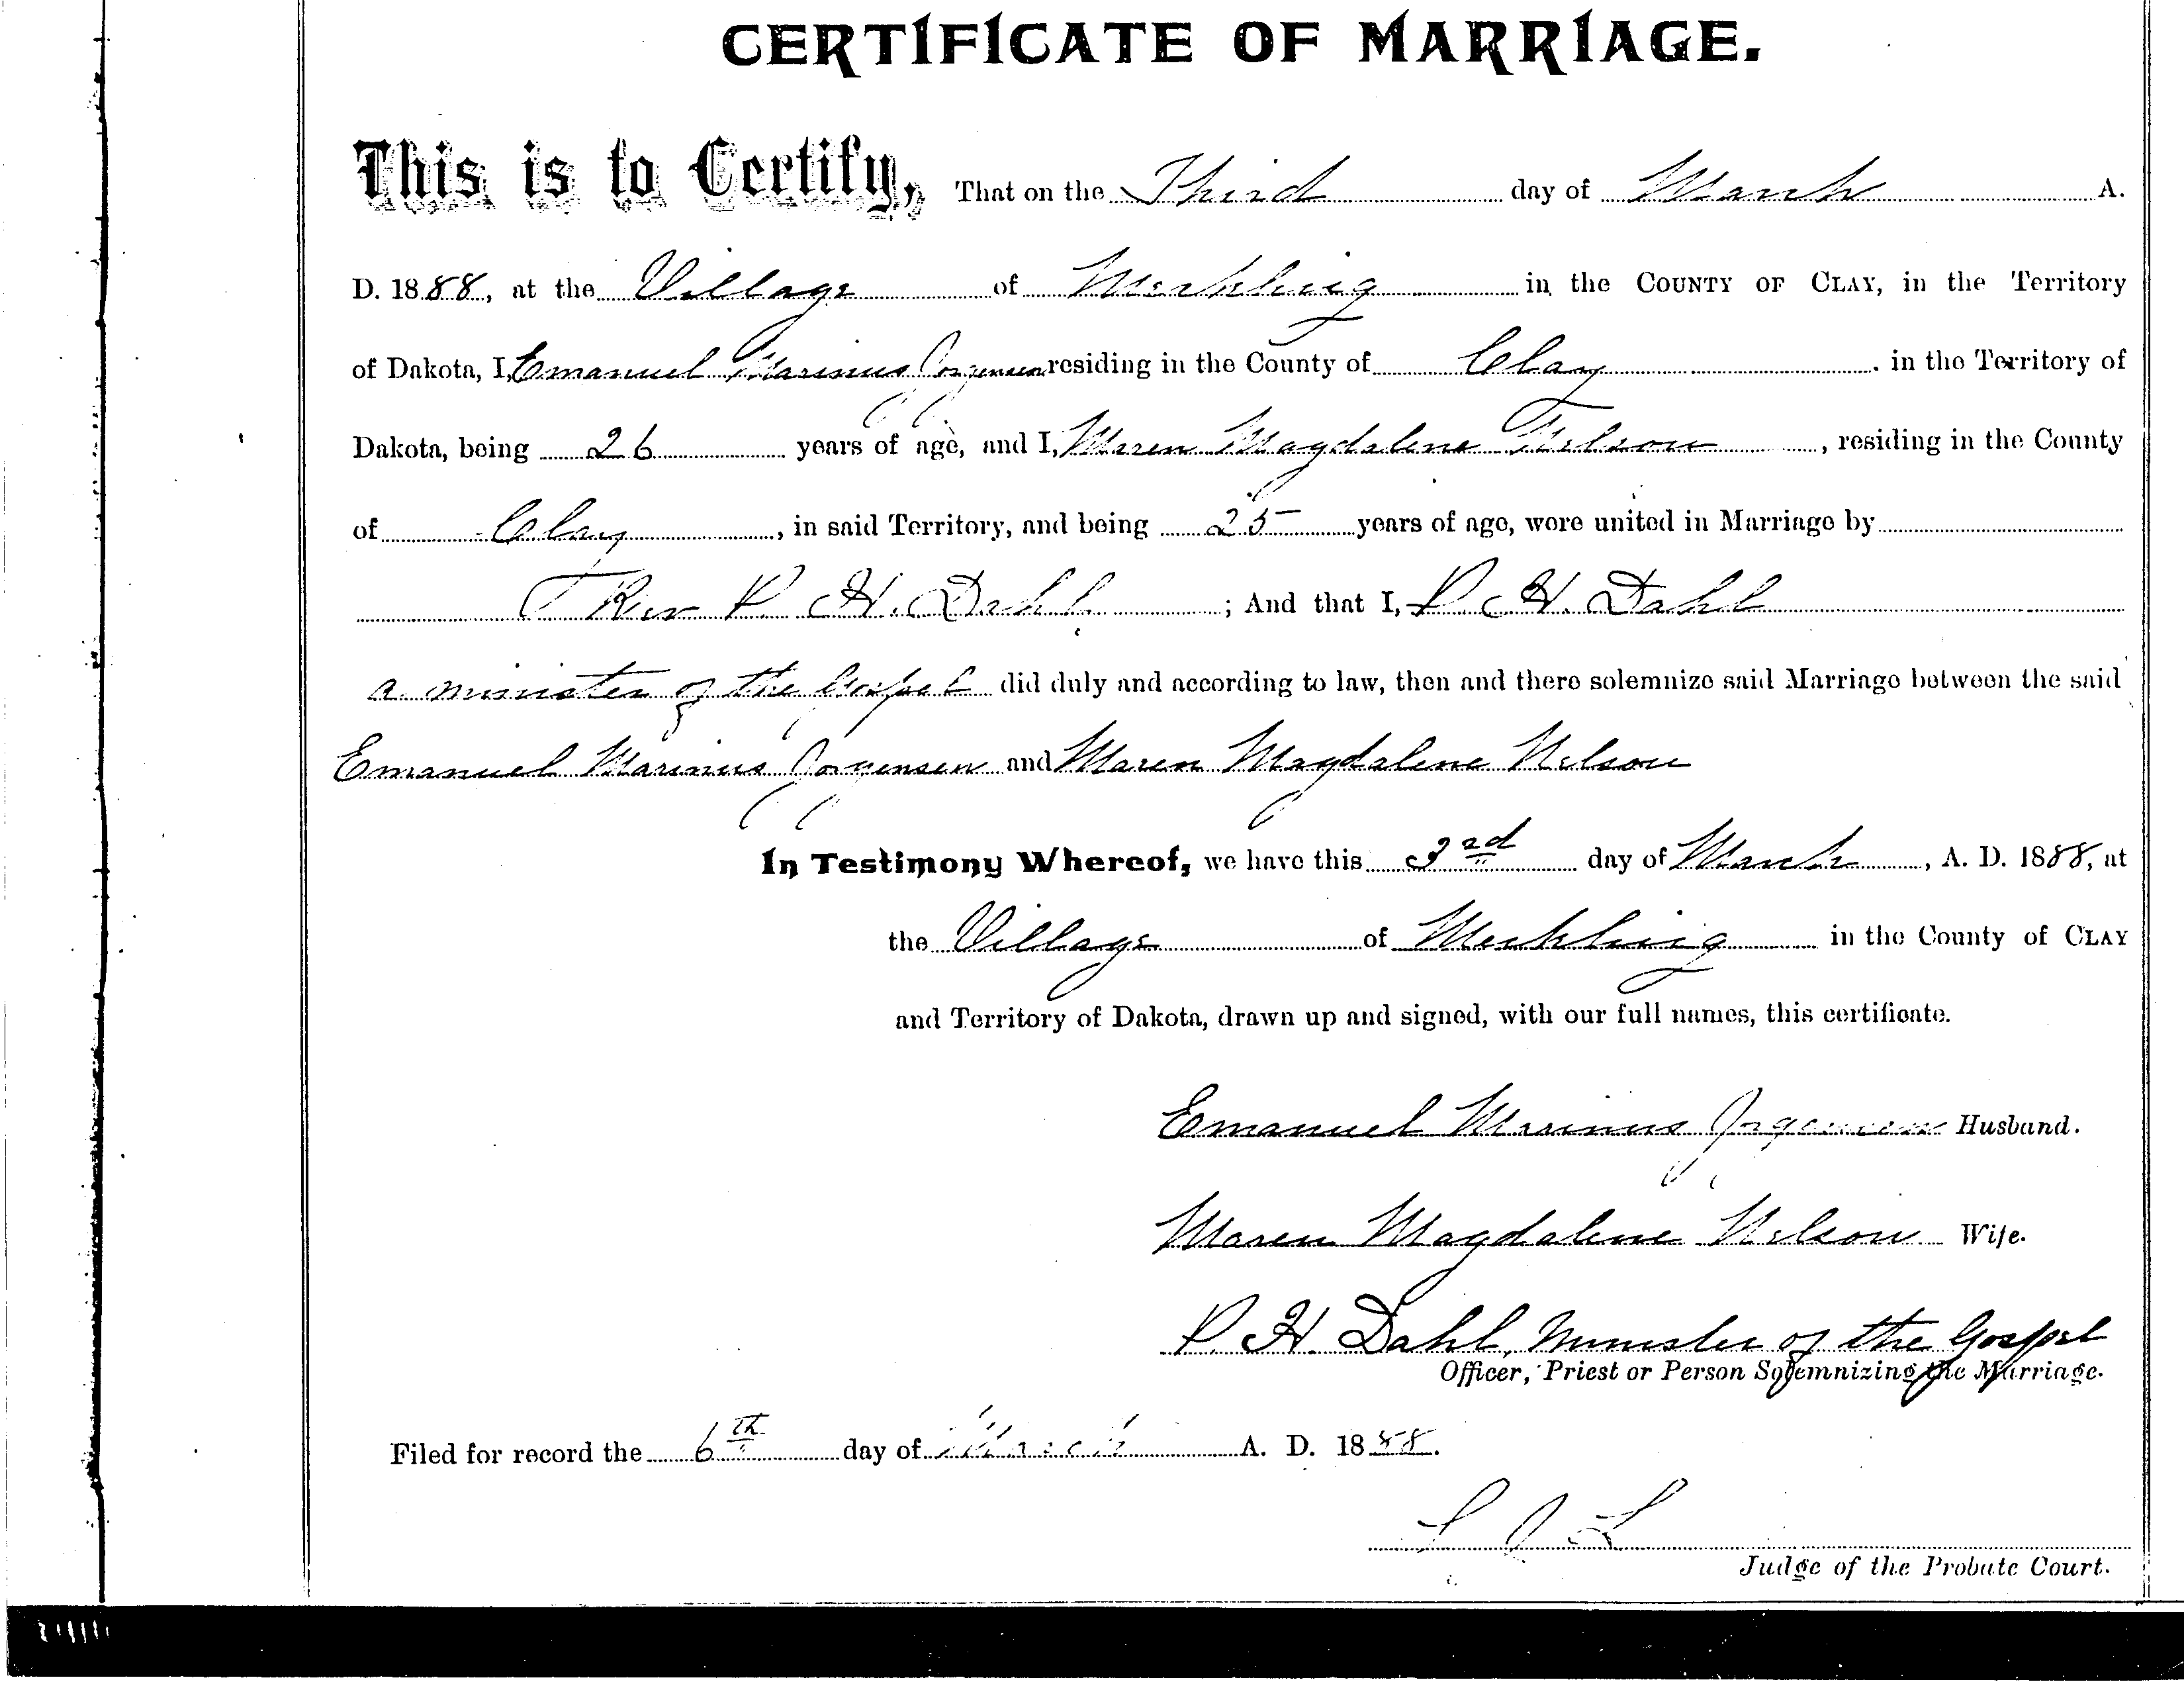 CERTIFICATE OF MARRIAGE.
This is to Certify, That on the Third day of March A.
D. 1888, at the Village of Meckling in the COUNTY OF CLAY, in the Territory
of Dakota, I, Emanuel Marinus Jorgensen residing in the County of Clay in the Territory of
Dakota, being 26 years of age, and I, Maren Magdalene Nelson, residing in the County
of Clay, in said Territory, and being 25 years of age, were united in Marriage by
Rev P. H. Dahl; And that I, P. H. Dahl
a minister of the Gospel did duly and according to law, then and there solemnize said Marriage between the said
Emanuel Marinus Jorgensen and Maren Magdalene Nelson
In Testimony Whereof, we have this 3rd day of March, A. D. 1888, at
the Village of Meckling in the County of CLAY
and Territory of Dakota, drawn up and signed, with our full names, this certificate.
Emanuel Marinus Jorgensen Husband.
Maren Magdalene Nelson Wife.
P. H. Dahl, Minister of the Gospel
Officer, Priest or Person Solemnizing the Marriage.
Filed for record the 6th day of March A. D. 1888.
Judge of the Probate Court.